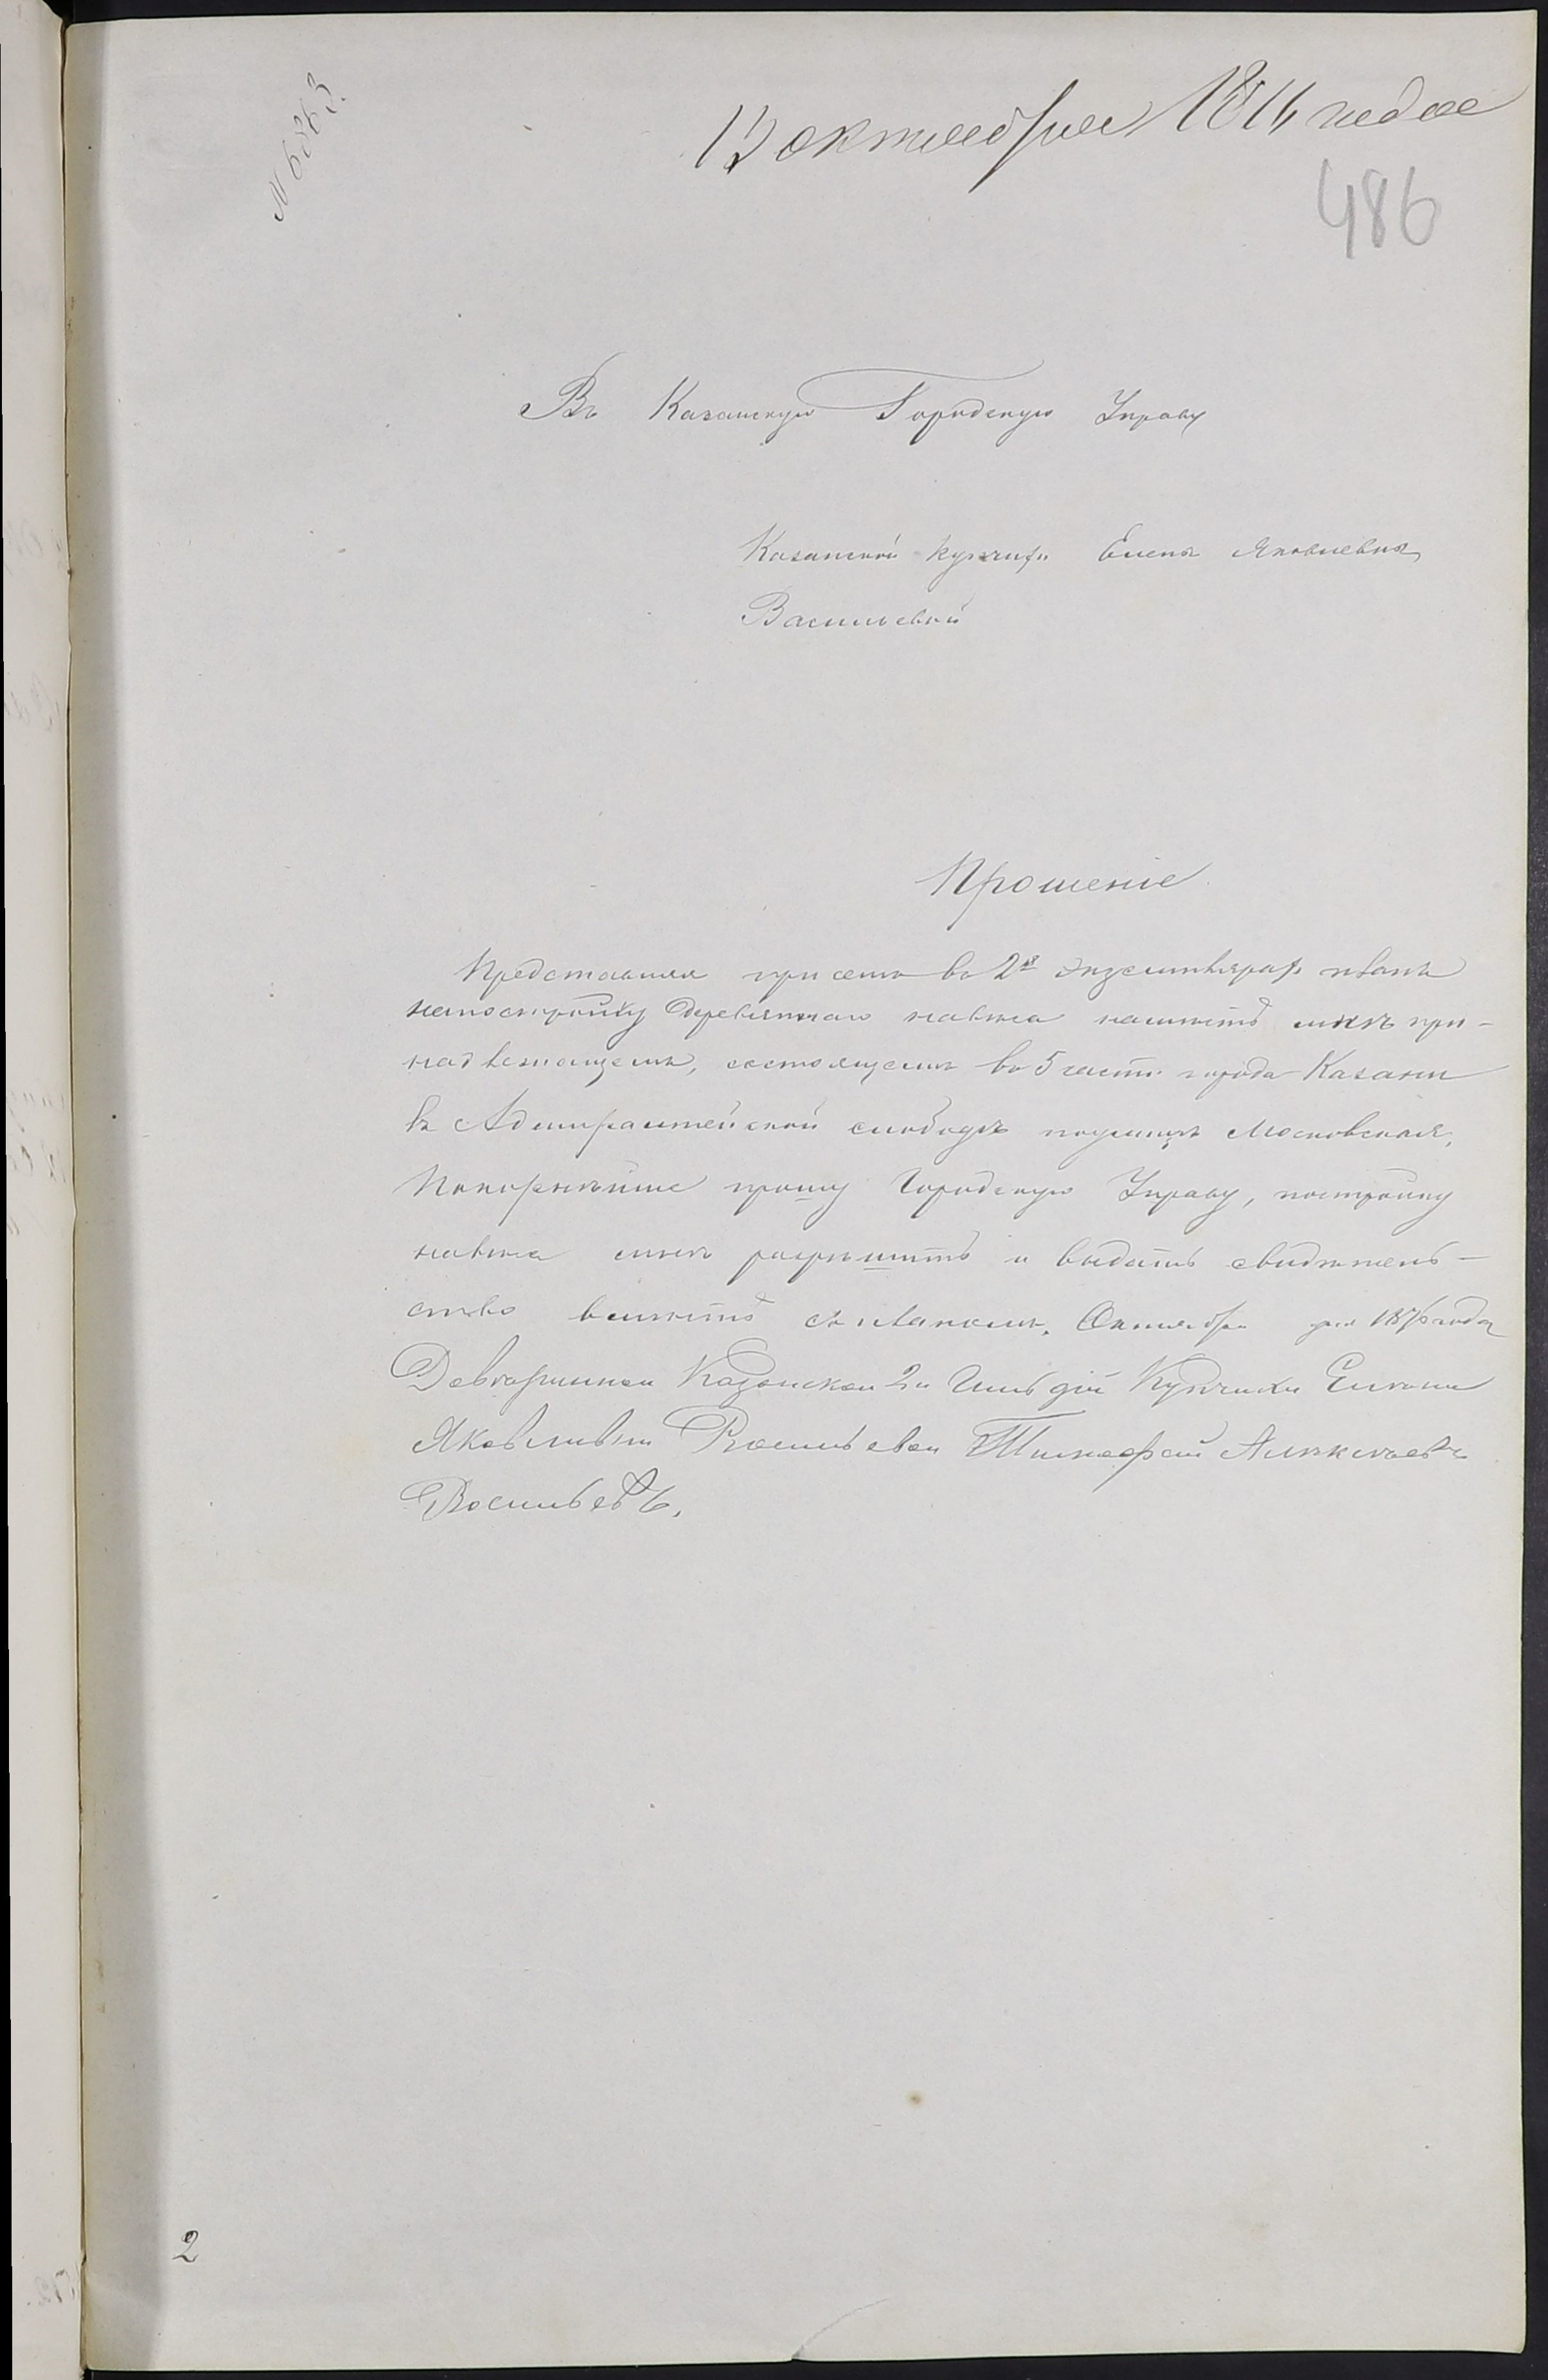 № 6863.
13 октября 1876 года
486
Въ Казанскую Городскую Управу
Казанской купчихи Елены Яковлевны
Васильевой
Прошеніе
Представляя при семъ въ 2х экземплярах планъ
на постройку деревяннаго навѣса на мѣстѣ мнѣ при-
надлежащемъ, состоящемъ въ 5 части города Казани
въ Адмиралтейской слободѣ по улицѣ Московская,
Покорнѣйше прошу Городскую Управу, постройку
навѣса мнѣ разрѣшить и выдать свидѣтель-
ство вмѣстѣ съ планомъ. Октября дня 1876 года
Довѣренной Казанской 2й Гильдіи Купчихи Елены
Яковлевны Васильевой Тимофей Алексѣевъ
Васильевъ.
2